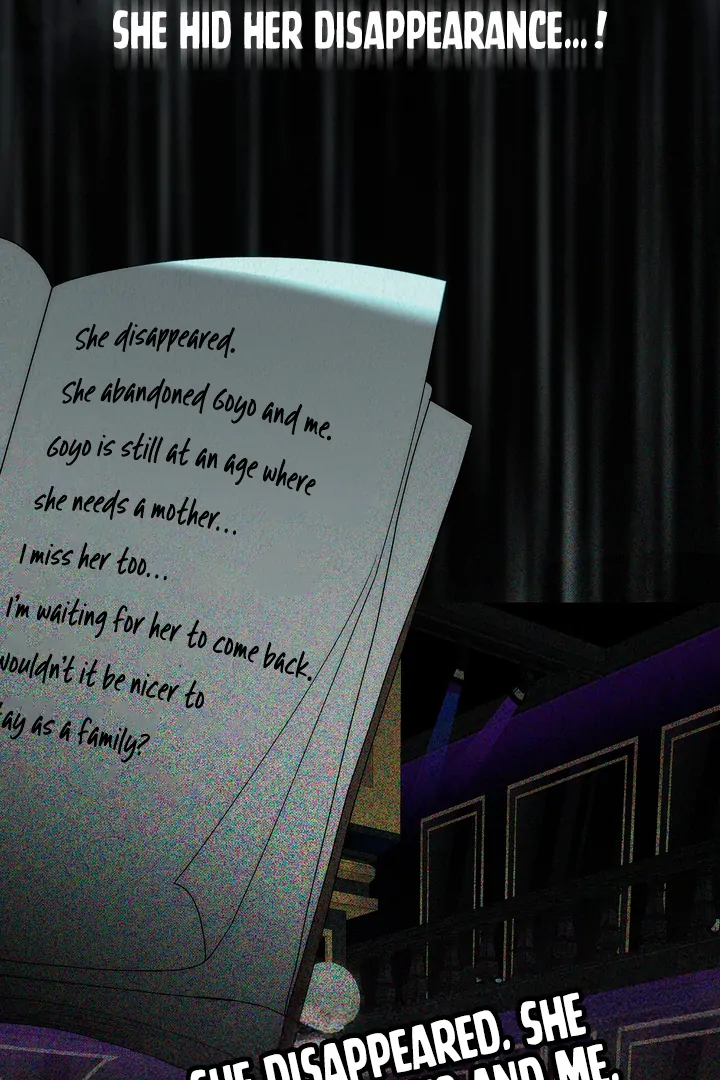 SHE HID HER DISAPPEARANCE...!
She disappeared.
She abandoned Goyo and me.
Goyo is still at an age where
she needs a mother...
I miss her too...
I'm waiting for her to come back.
wouldn't it be nicer to
as a family?
SHE DISAPPEARED. SHE
AND ME.